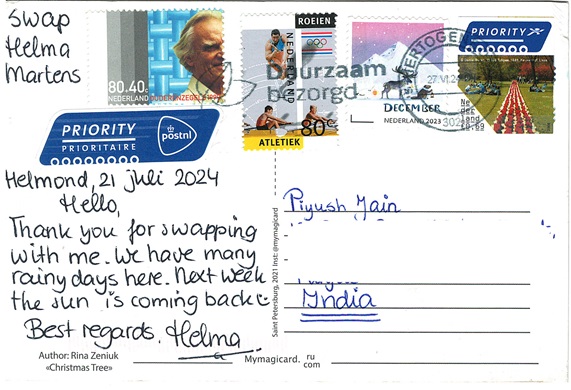 Swap
Helma
Martens
80.40 c
NEDERLAND ZOMERZEGEL
ROEIEN
NEDERLAND
80 c
ATLETIEK
Duurzaam
bezorgd.
DECEMBER
NEDERLAND 2023
PRIORITY
Ne
der
land
PRIORITY
PRIORITAIRE
postnl
Helmond, 21 juli 2024
Hello,
Thank you for swapping
with me. We have many
rainy days here. Next week
the sun is coming back
Best regards. Helma
Piyush Jain
India
Saint Petersburg, 2021 Inst: @mymagicard
Author: Rina Zeniuk
«Christmas Tree»
Mymagicard. ru
com